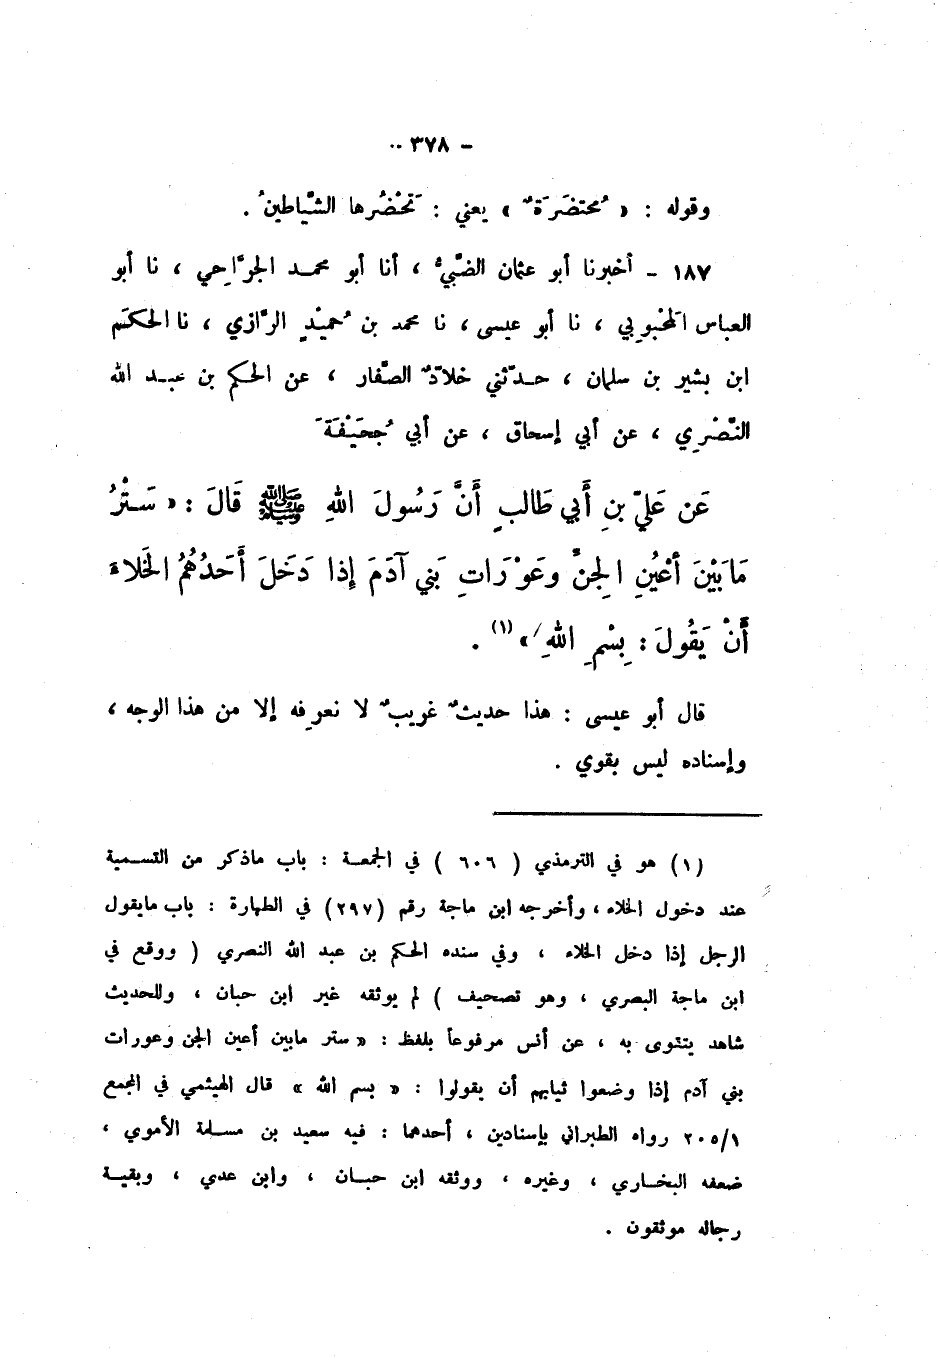 - ٣٧٨ -
وقوله : « مُحتضَرَةٌ » يعني : تَحْضُرها الشَّياطينُ .
١٨٧ - أخبرنا أبو عثمان الضَّبِّيُّ ، أنا أبو محمـد الجرَّاحِي ، نا أبو
العباس المَحْبُوبِي ، نا أبو عيسى ، نا محمد بن حُميْدٍ الرَّازي ، نا الحكَم
ابن بشير بن سلمان ، حـدّثني خلادٌ الصَّفار ، عن الحكم بن عبـد الله
النَّصْرِي ، عن أبي إسحاق ، عن أبي جُحَيْفَةَ
عَن عَليّ بنِ أَبي طَالبٍ أَنَّ رَسُولَ اللهِ ﷺ قَالَ : « سَـتْرُ
مَا بَيْنَ أَعْيُنِ الجِنِّ وعَوْرَاتِ بَني آدَمَ إذا دَخَلَ أَحَدُهُمُ الخَلاءَ
أَنْ يَقُولَ : بِسْمِ اللهِ »(١) .
قال أبو عيسى : هذا حديثٌ غريبٌ لا نعرِفه إلا من هذا الوجه ،
وإسناده ليس بقوي .
(١) هو في الترمذي ( ٦٠٦ ) في الجمعـة : باب ماذكر من التسـمية
عند دخول الخلاء ، وأخرجه ابن ماجة رقم (٢٩٧) في الطهارة : باب مايقول
الرجل إذا دخل الخلاء ، وفي سنده الحكم بن عبد الله النصري ( ووقع في
ابن ماجة البصري ، وهو تصحيف ) لم يوثقه غير ابن حبان ، وللحديث
شاهد يتقوى به ، عن أنس مرفوعاً بلفظ : « ستر مابين أعين الجن وعورات
بني آدم إذا وضعوا ثيابهم أن يقولوا : « بسم الله » قال الهيثمي في المجمع
٢٠٥/١ رواه الطبراني بإسنادين ، أحدهما : فيه سعيد بن مسـلمة الأموي ،
ضعفه البخـاري ، وغيره ، ووثقه ابن حبـان ، وابن عدي ، وبقيـة
رجاله موثقون .